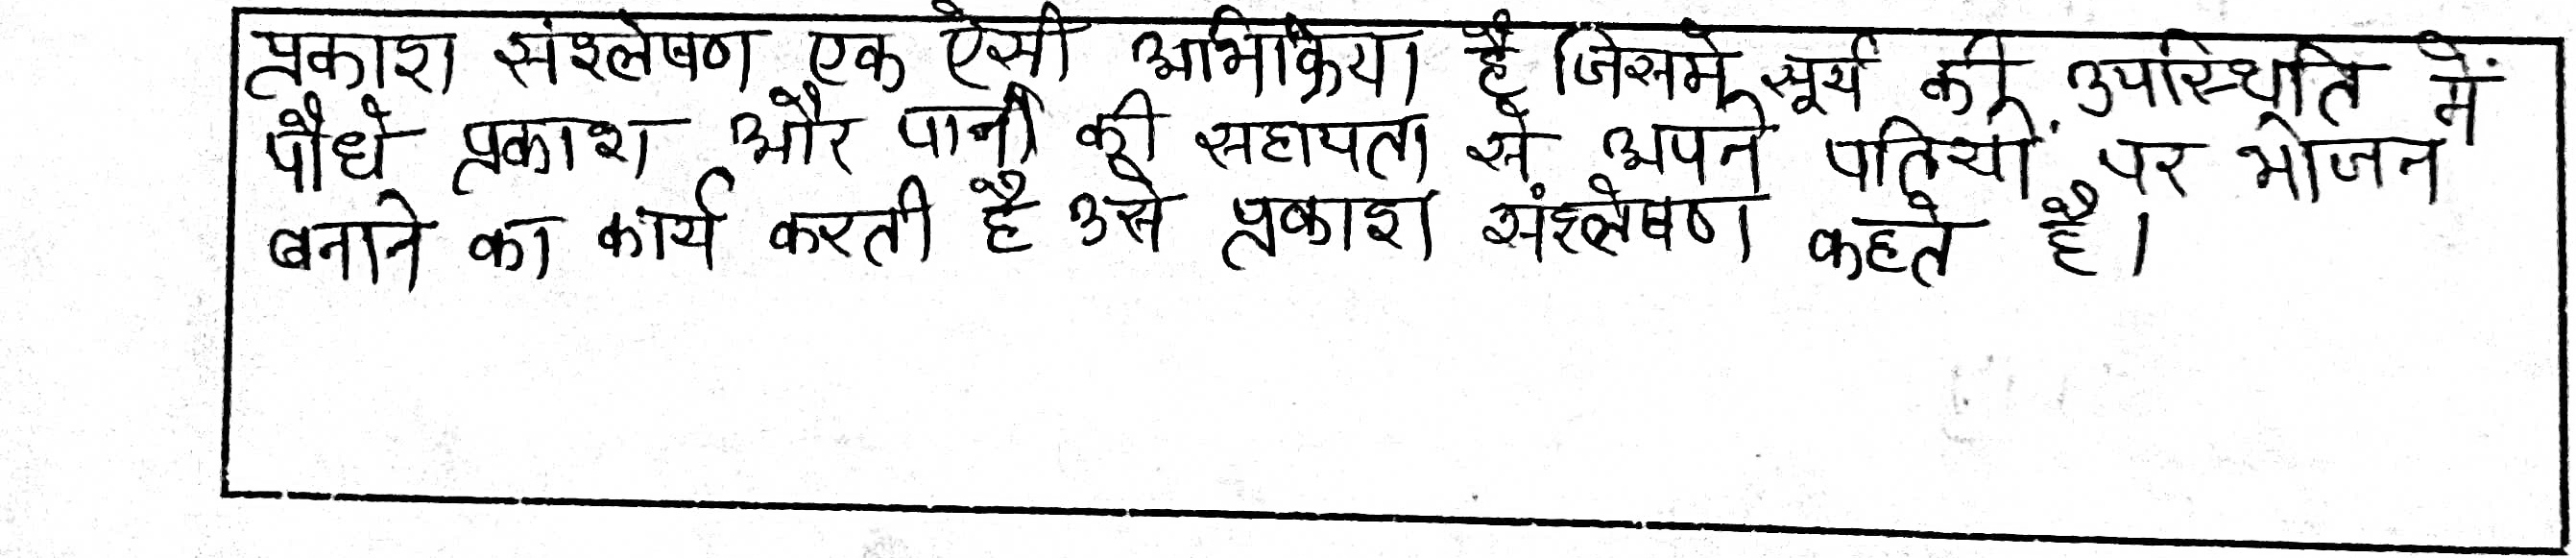 प्रकाश संश्लेषण एक ऐसी अभिक्रिया है जिसमे सूर्य की उपस्थिति में
पौधे प्रकाश और पानी की सहायता से अपने पतियों पर भोजन
बनाने का कार्य करती है उसे प्रकाश संश्लेषण कहते है।